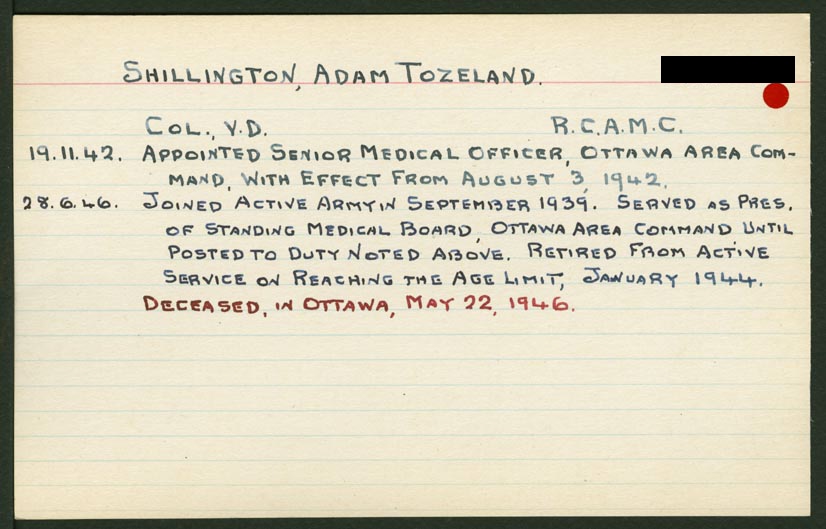 SHILLINGTON, ADAM TOZELAND.
COL., V.D. R.C.A.M.C.
19.11.42. APPOINTED SENIOR MEDICAL OFFICER, OTTAWA AREA COM-
MAND, WITH EFFECT FROM AUGUST 3, 1942.
28.6.46. JOINED ACTIVE ARMY IN SEPTEMBER 1939. SERVED AS PRES.
OF STANDING MEDICAL BOARD, OTTAWA AREA COMMAND UNTIL
POSTED TO DUTY NOTED ABOVE. RETIRED FROM ACTIVE
SERVICE ON REACHING THE AGE LIMIT, JANUARY 1944.
DECEASED, IN OTTAWA, MAY 22, 1946.